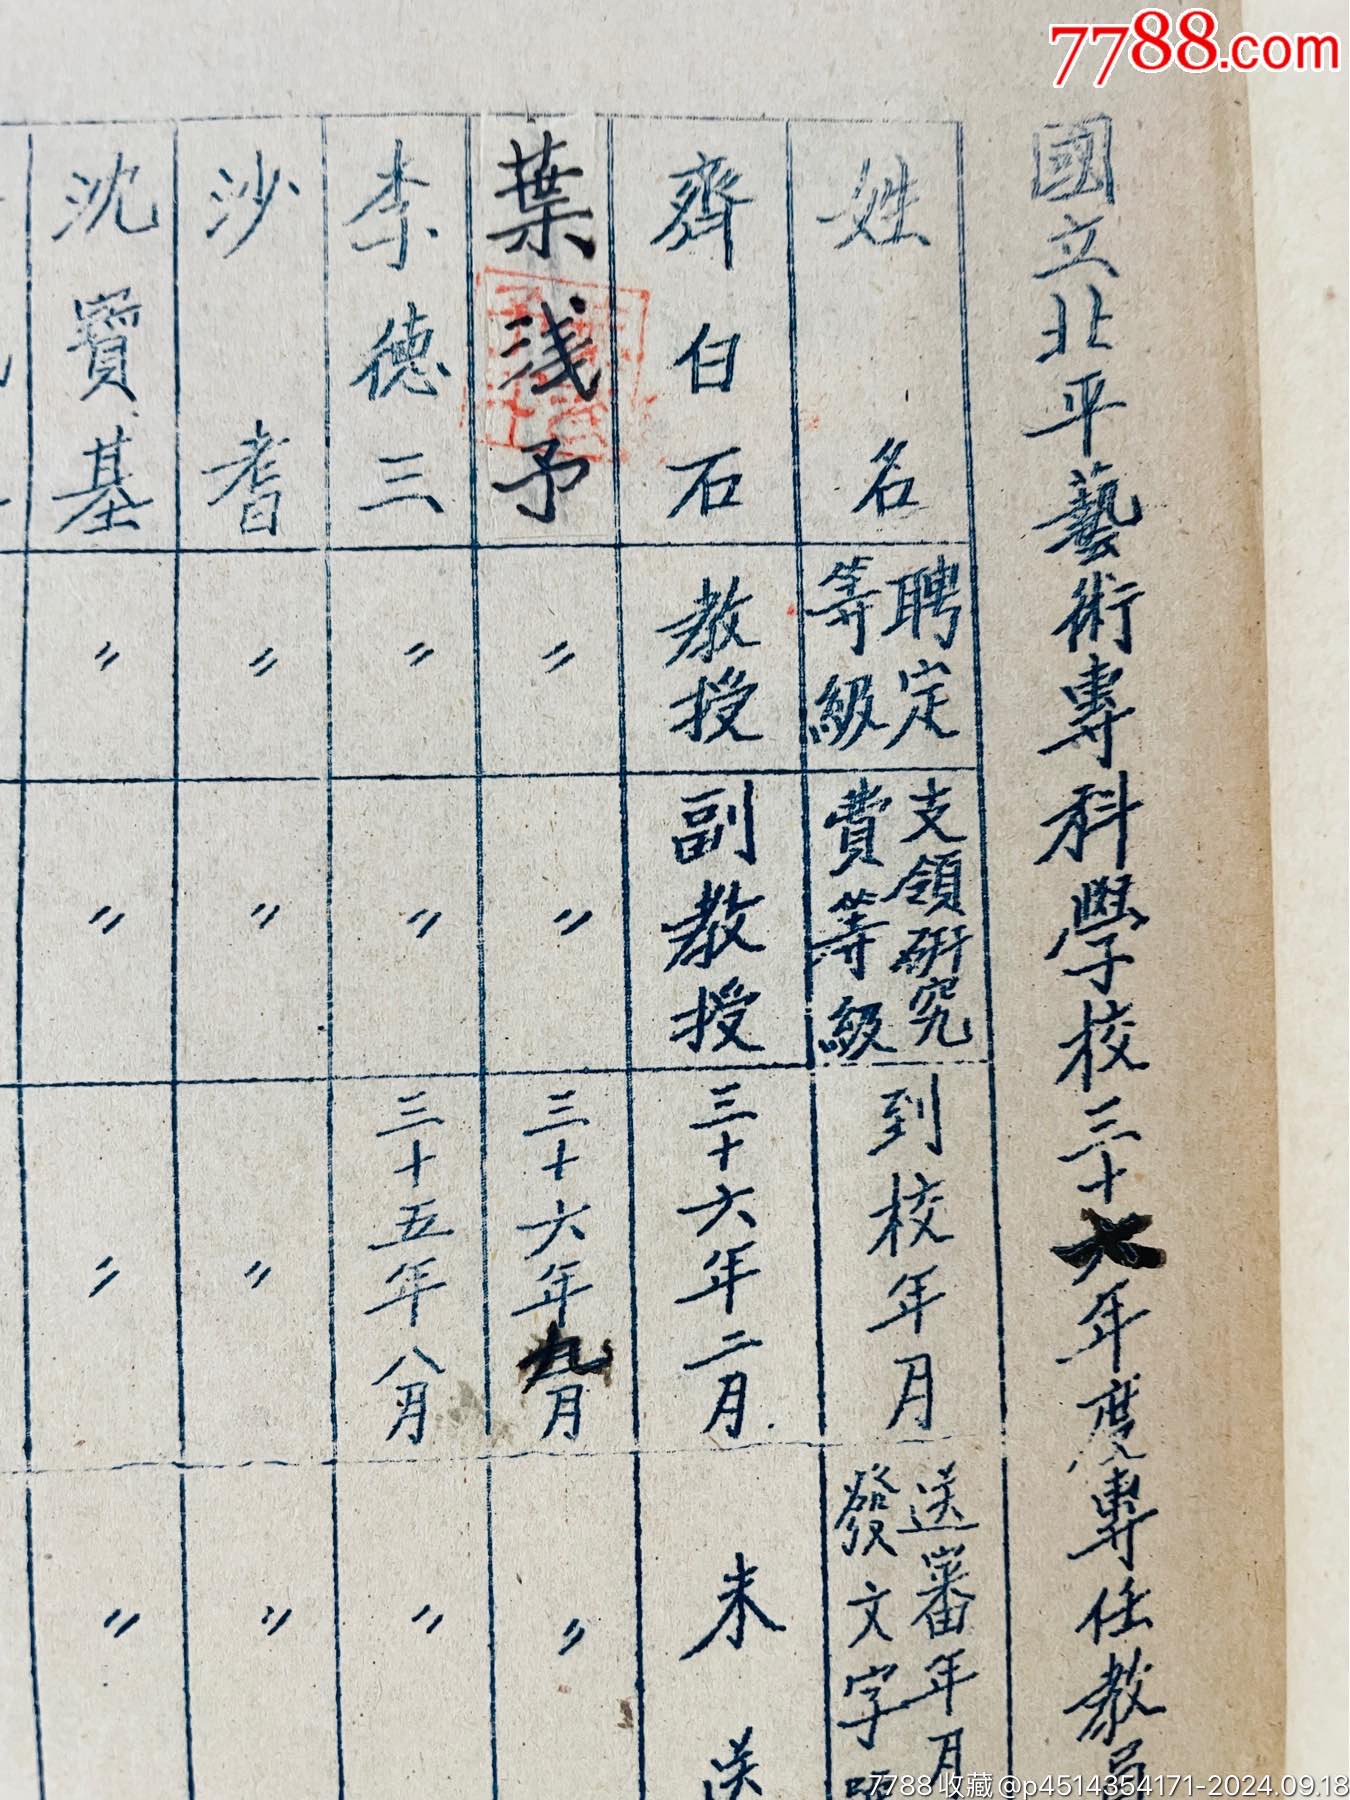 7788.com
國立北平藝術專科學校三十七年度專任教員
姓名
聘定等級
支領研究費等級
到校年月
送審年月
發文字號
齊白石
教授
副教授
三十六年二月
未送
葉浅予
〃
〃
三十六年九月
〃
李德三
〃
〃
三十五年八月
〃
沙耆
〃
〃
〃
〃
沈寶基
〃
〃
〃
〃
7788收藏@p4514354171-2024.09.18